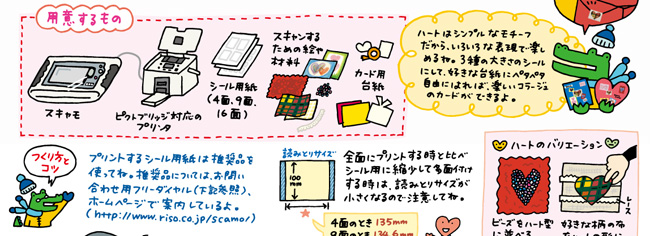 用意するもの
スキャモ
ピクトブリッジ対応の
プリンタ
シール用紙
(4面、9面、
16面)
スキャンする
ための絵や
材料
カード用
台紙
ハートはシンプルなモチーフ
だから、いろいろな表現で楽し
めるわ。3種の大きさのシール
にして、好きな台紙にペタペタ
自由にはれば、楽しいコラージュ
のカードができるよ。
つくり方と
コツ
プリントするシール用紙は推奨品を
使ってね。推奨品については、お問い
合わせ用フリーダイヤル(下記参照)、
ホームページで案内しているよ。
(http://www.riso.co.jp/scamo/)
読みとりサイズ
100
mm
全面にプリントする時と比べ
シール用に縮少して多面付け
する時は、読みとりサイズが
小さくなるので注意してね。
4面のとき 135mm
9面のとき 134.6mm
ハートのバリエーション
レース
ビーズをハート型
に並べる
好きな柄の布